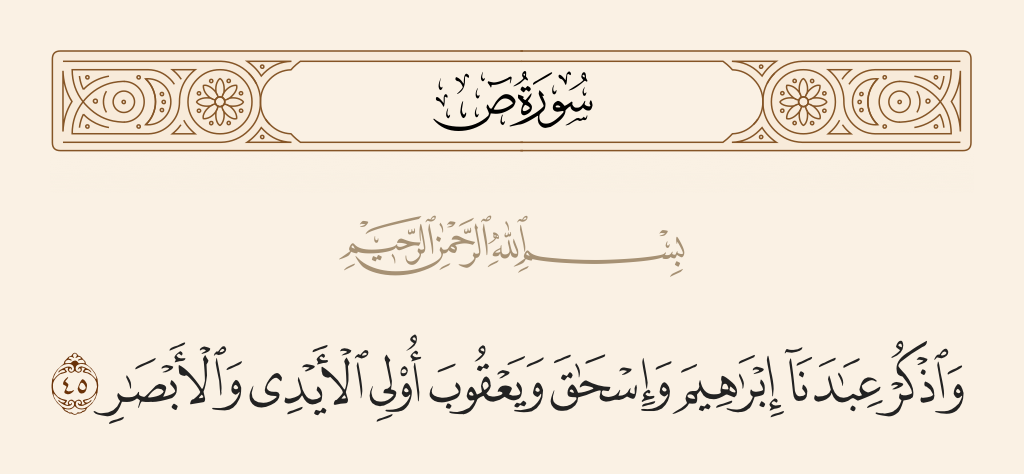 سُورَةُ صٓ
بِسْمِ ٱللَّهِ ٱلرَّحْمَٰنِ ٱلرَّحِيمِ
وَٱذْكُرْ عِبَٰدَنَآ إِبْرَٰهِيمَ وَإِسْحَٰقَ وَيَعْقُوبَ أُو۟لِى ٱلْأَيْدِى وَٱلْأَبْصَٰرِ ٤٥